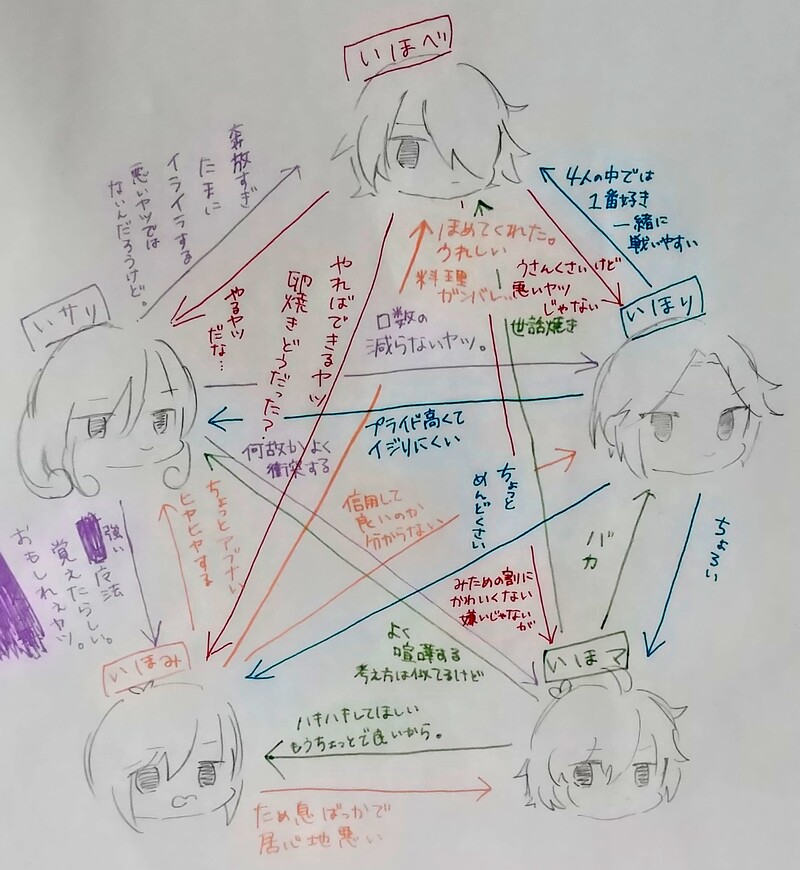 いほべ
奔放すぎ
たまに
イライラする
悪いヤツでは
ないんだろうけど。
4人の中では
1番好き
一緒に
戦いやすい
ほめてくれた。
うれしい
料理
ガンバレ..
うさんくさいけど
悪いヤツ
じゃない
世話焼き
やればできるヤツ
卵焼きどうだった?
やるヤツ
だな…
口数の
減らないヤツ。
いサリ
いほり
プライド高くて
イジりにくい
何故かよく
衝突する
信用して
良いのか
分からない
ちょっと
めんどくさい
ちょっとアブナい
ヒヤヒヤする
強い
魔法
覚えたらしい。
おもしれぇヤツ。
バカ
ちょろい
みための割に
かわいくない
嫌いじゃない
が
よく
喧嘩する
考え方は似てるけど
いほみ
いほマ
ハキハキしてほしい
もうちょっとで良いから。
ため息ばっかで
居心地悪い